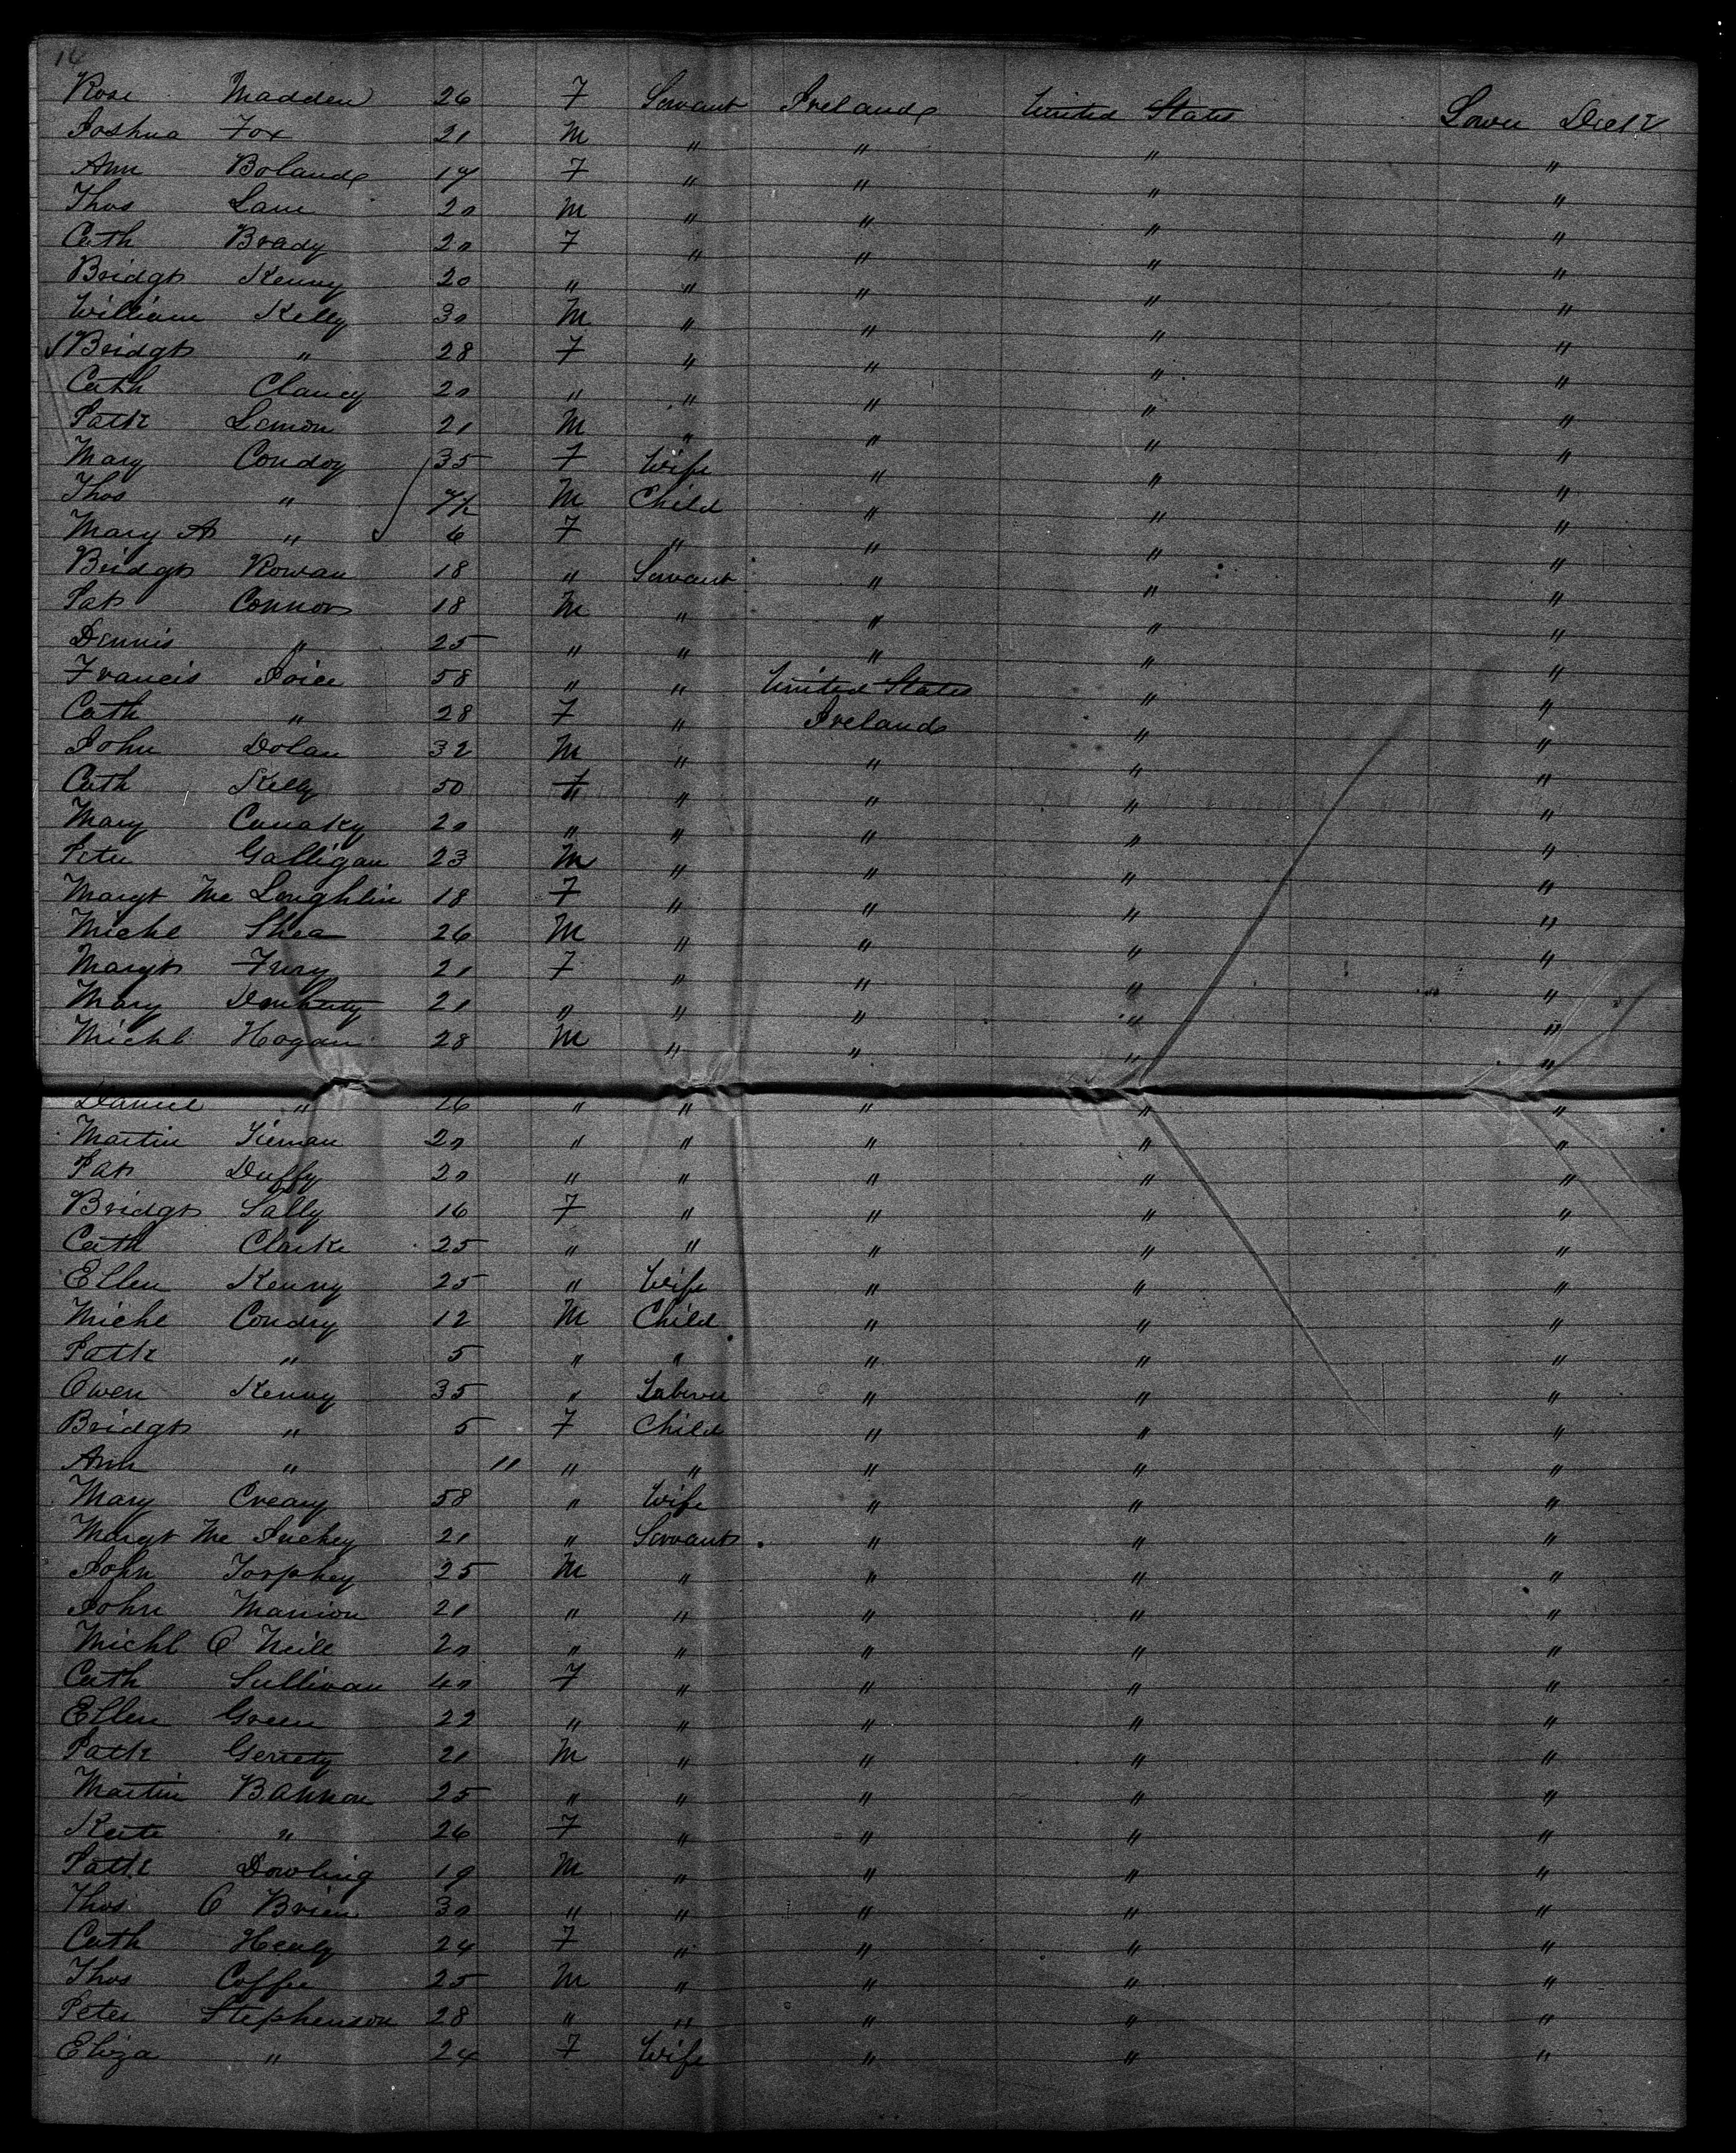 16
Rose Madden 26 F Servant Ireland United States Lower Deck
Joshua Fox 21 M " " " "
Ann Boland 17 F " " " "
Thos Lane 20 M " " " "
Cath Brady 20 F " " " "
Bridgt Kenny 20 " " " " "
William Kelly 30 M " " " "
Bridgt " 28 F " " " "
Cath Clancy 20 " " " " "
Patk Lemon 21 M " " " "
Mary Condoy 35 F Wife " " "
Thos " 7½ M Child " " "
Mary A " 6 F " " " "
Bridgt Rowan 18 " Servant " " "
Pat Connors 18 M " " " "
Dennis " 25 " " " " "
Francis Joice 58 " " United States " "
Cath " 28 F " Ireland " "
John Dolan 32 M " " " "
Cath Kelly 50 F " " " "
Mary 20 " " " " "
Peter Galligan 23 M " " " "
Margt Mc Loughlin 18 F " " " "
Michl Shea 26 M " " " "
Margt Fury 21 F " " " "
Mary 21 " " " " "
Michl Hogan 28 M " " " "
Daniel " 16 " " " " "
Martin Tiernan 20 " " " " "
Pat Duffy 20 " " " " "
Bridgt Lally 16 F " " " "
Cath Clarke 25 " " " " "
Ellen Kenny 25 " Wife " " "
Michl Condry 12 M Child " " "
Patk " 5 " " " " "
Owen Kenny 35 " Laborer " " "
Bridgt " 5 F Child " " "
Ann " 11 " " " " "
Mary Creary 58 " Wife " " "
Margt Mc 21 " Servant " " "
John Torphey 25 M " " " "
John Manion 21 " " " " "
Michl O Neill 20 " " " " "
Cath Sullivan 40 F " " " "
Ellen Green 22 " " " " "
Patk Gerrety 21 M " " " "
Martin Bannon 25 " " " " "
Kate " 26 F " " " "
Patk Dowling 19 M " " " "
Thos O Brien 30 " " " " "
Cath Healy 24 F " " " "
Thos Coffee 25 M " " " "
Peter Stephenson 28 " " " " "
Eliza " 24 F Wife " " "